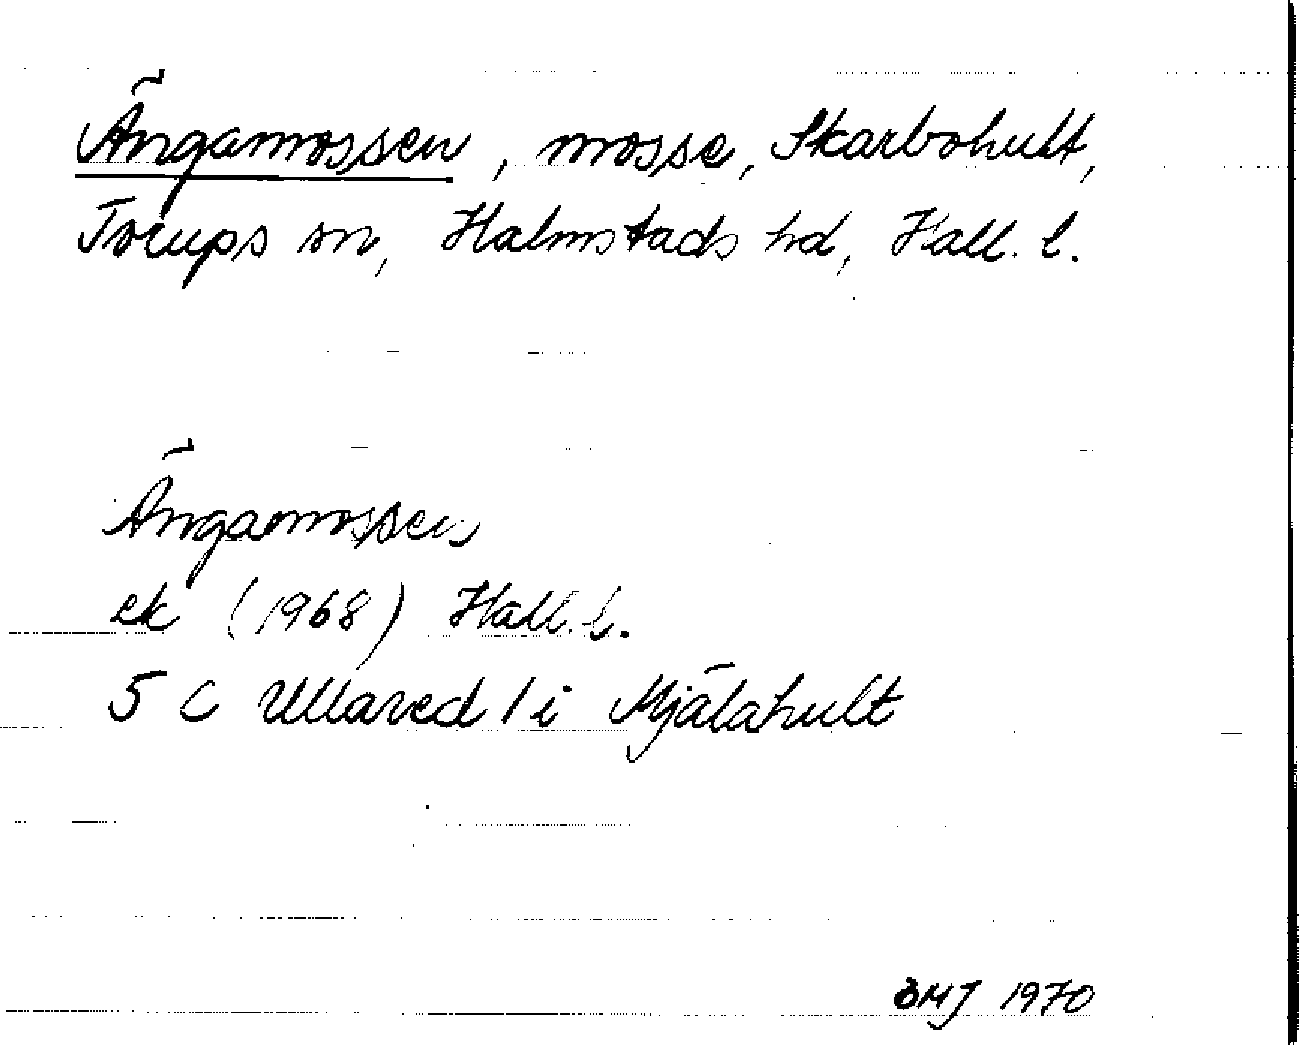 Ängamossen, mosse, Skarbohult,
Torups sn, Halmstads hd, Hall. l.
Ängamossen
ek (1968) Hall. l.
5 C Ullared / i Mjälahult
ÖMJ 1970